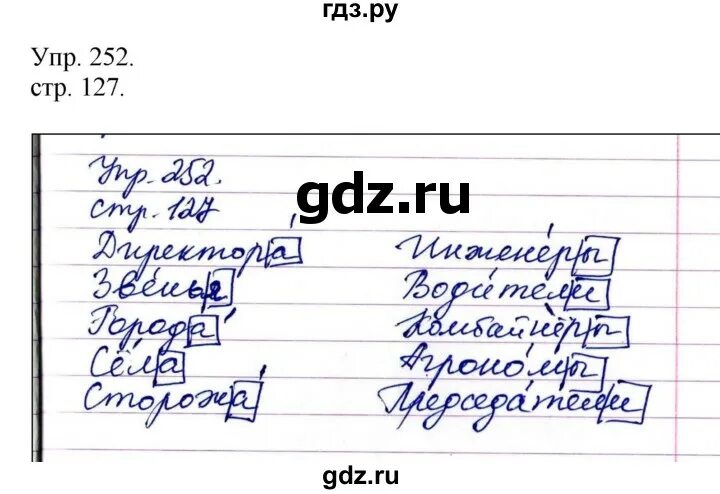 гдз.ру
Упр. 252.
стр. 127.
Упр. 252.
gdz.ru
стр. 127
Директора́ Инжене́ры
Зве́нья Води́тели
Города́ Комбайнёры
Сёла Агроно́мы
Сторожа́ Председа́тели
gdz.ru